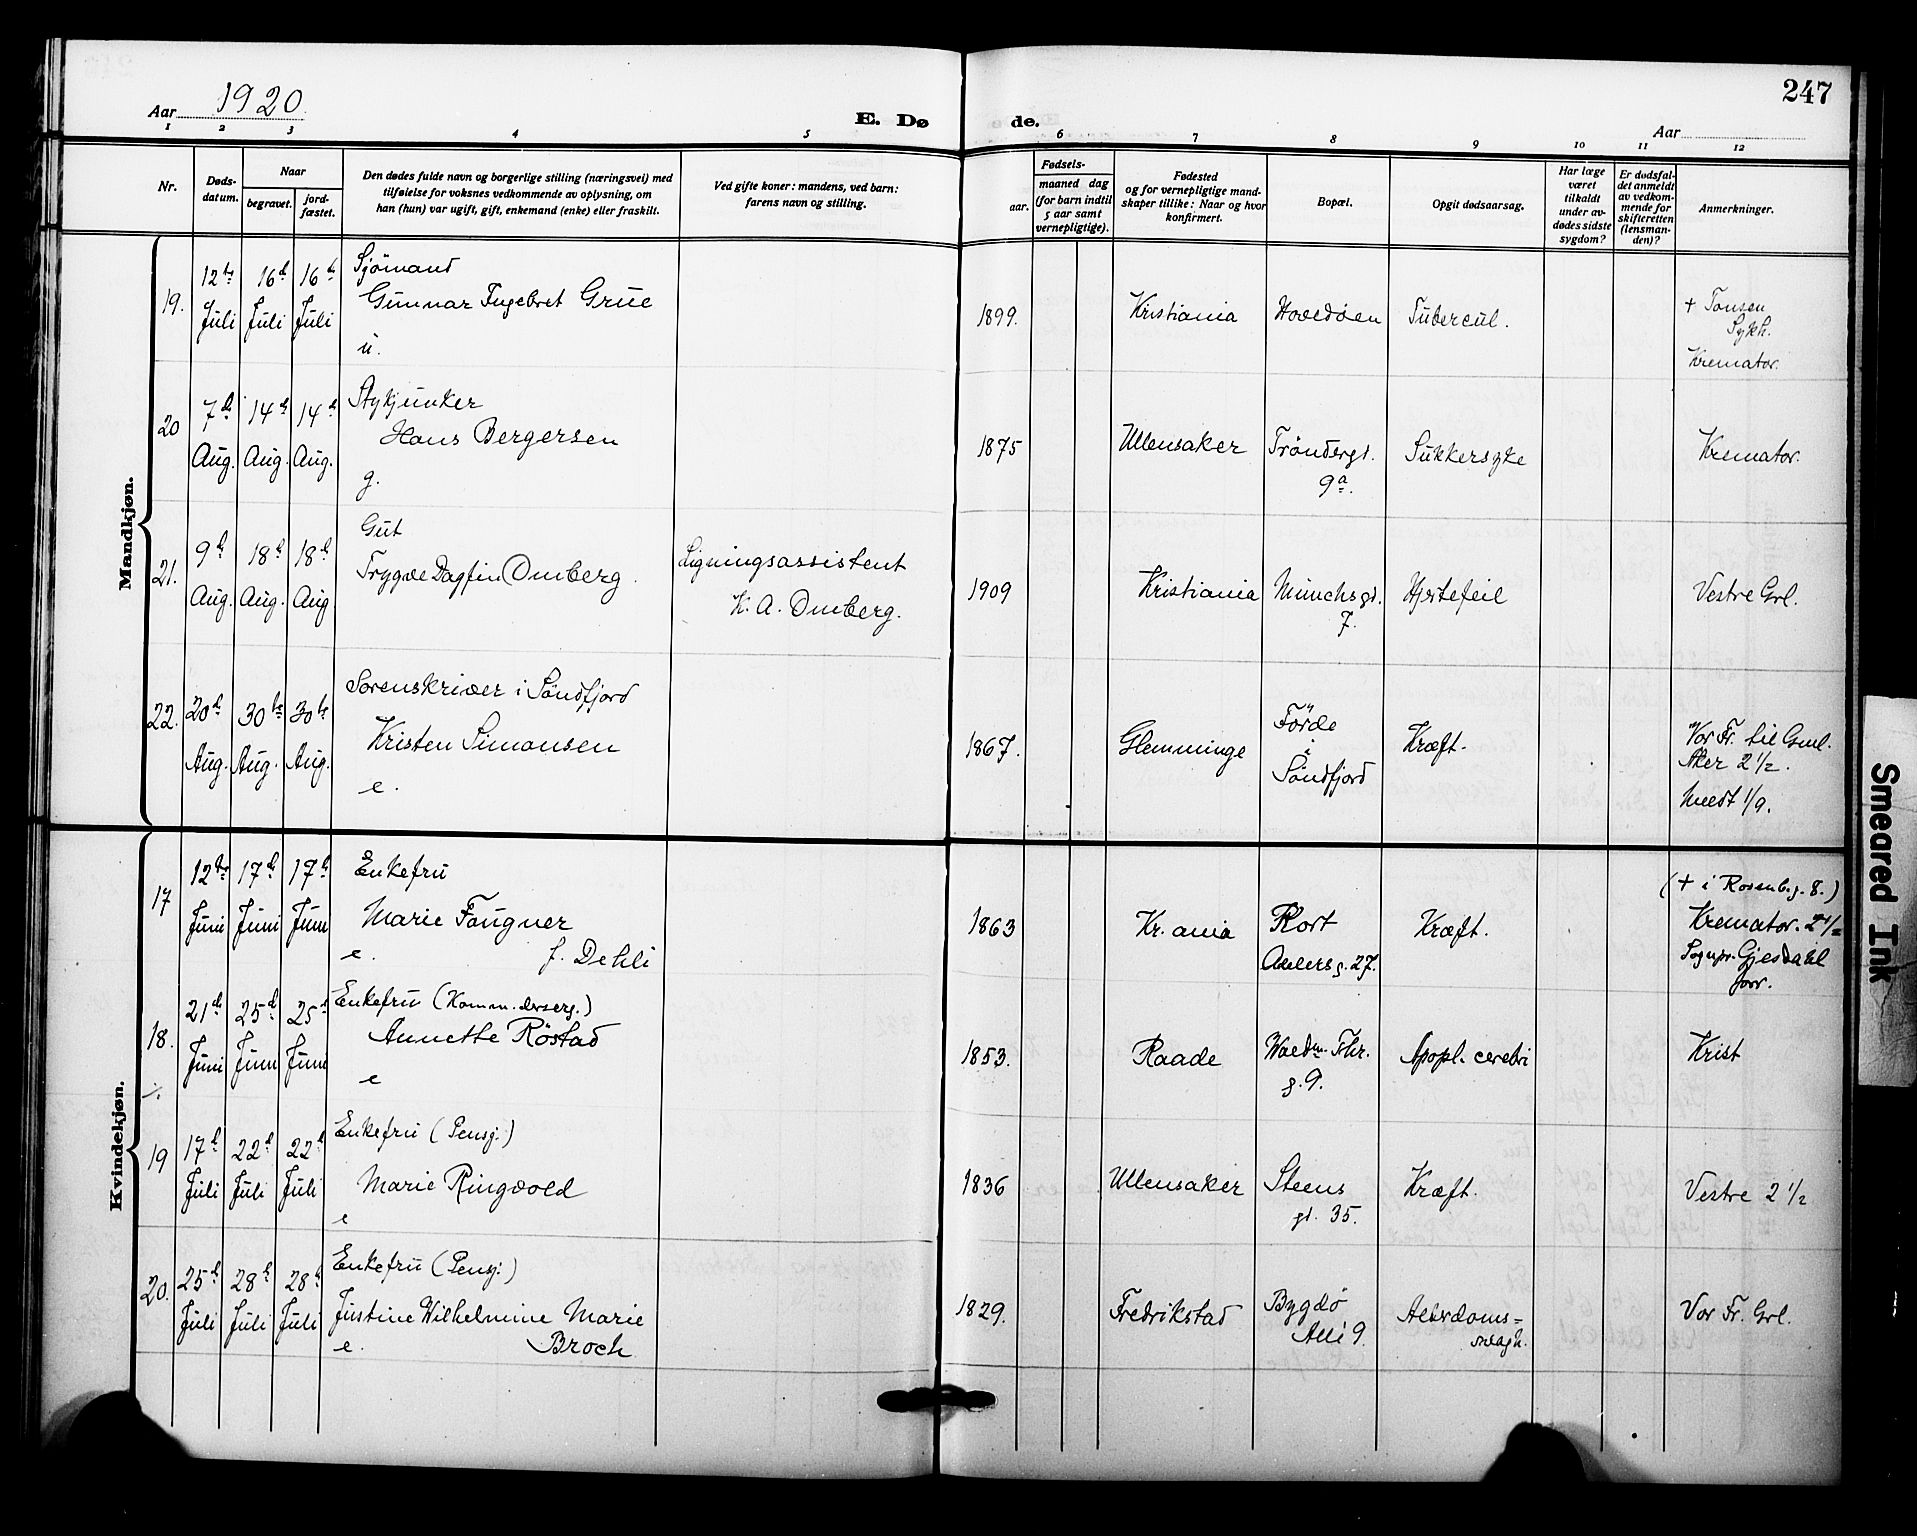 247
Aar 1920.
E. Dø de.
Aar
1 2 3 4 5 6 7 8 9 10 11 12
Nr.
Døds-
datum.
Naar
begravet.
jord-
fæstet.
Den dødes fulde navn og borgerlige stilling (næringsvei) med
tilføielse for voksnes vedkommende av oplysning, om
han (hun) var ugift, gift, enkemand (enke) eller fraskilt.
Ved gifte koner: mandens, ved barn:
farens navn og stilling.
Fødsels-
aar.
maaned dag
(for barn indtil
5 aar samt
vernepligtige).
Fødested
og for vernepligtige mand-
skaper tillike: Naar og hvor
konfirmert.
Bopæl.
Opgit dødsaarsag.
Har læge
været
tilkaldt
under av-
dødes sidste
sygdom?
Er dødsfal-
det anmeldt
av vedkom-
mende for
skifteretten
(lensman-
den)?
Anmerkninger.
Mandkjøn.
19.
12te
Juli
16de
Juli
16de
Juli
Sjömand
Gunnar Engebret Grue
u.
1899.
Kristiania
Hovedöen
Tubercul.
+ Tonsen
Sykh.
Kremator.
20
7de
Aug.
14de
Aug.
14de
Aug.
Stykjunker
Hans Bergersen
g.
1875
Ullensaker
Tröndergt.
9a.
Sukkersyke
Kremator.
21.
9de
Aug.
18de
Aug.
18de
Aug
Gut
Trygve Dagfin Omberg.
Ligningsassistent
K. A. Omberg.
1909
Kristiania
Munchsgt.
7.
Hjertefeil
Vestre Grl.
22.
20de
Aug.
30te
Aug.
30te
Aug.
Sorenskriver i Söndfjord
Kristen Simonsen
e.
1867.
Glemminge
Förde
i
Söndfjord
Kræft.
Vor Fr. til Gml.
Aker 2 1/2.
Meldt 1/9.
Kvindekjøn.
17
12te
Juni
17de
Juni
17de
Juni
Enkefru
Marie Fougner
e. f. Dehli
1863
Kr.ania
Kort
Adelersg. 27.
Kræft.
(+ i Rosenbg. 8.)
Kremator. 2 1/2
Sognpr. Gjesdahl
forr.
18.
21de
Juni
25de
Juni
25de
Juni
Enkefru (Komm. derserg.)
Annette Röstad
e
1853.
Raade
Waldm. Thr.
g. 9.
Apopl. cerebri
Krist
19
17de
Juli
22de
Juli
22de
Juli
Enkefru (Pensj.)
Marie Ringvold
e
1836
Ullensaker
Steens
gt. 35.
Kræft.
Vestre 2 1/2
20.
25de
Juli
28de
Juli
28de
Juli
Enkefru (Pensj.)
Justine Wilhelmine Marie
e. Broch
1829.
Fredrikstad
Bygdö
Allé 9.
Alderdoms-
svagh.
Vor Fr. Grl.
Smeared Ink